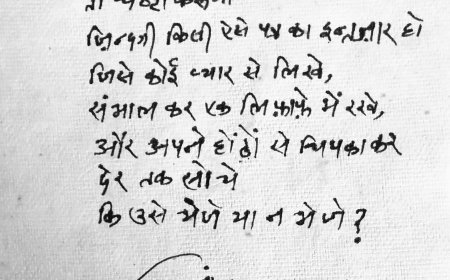 ज़िन्दगी किसी ऐसे पत्र का इन्तज़ार हो
जिसे कोई प्यार से लिखे,
संभाल कर एक लिफ़ाफ़े में रखे,
और अपने होंठों से चिपका कर
देर तक सोचे
कि उसे भेजे या न भेजे?